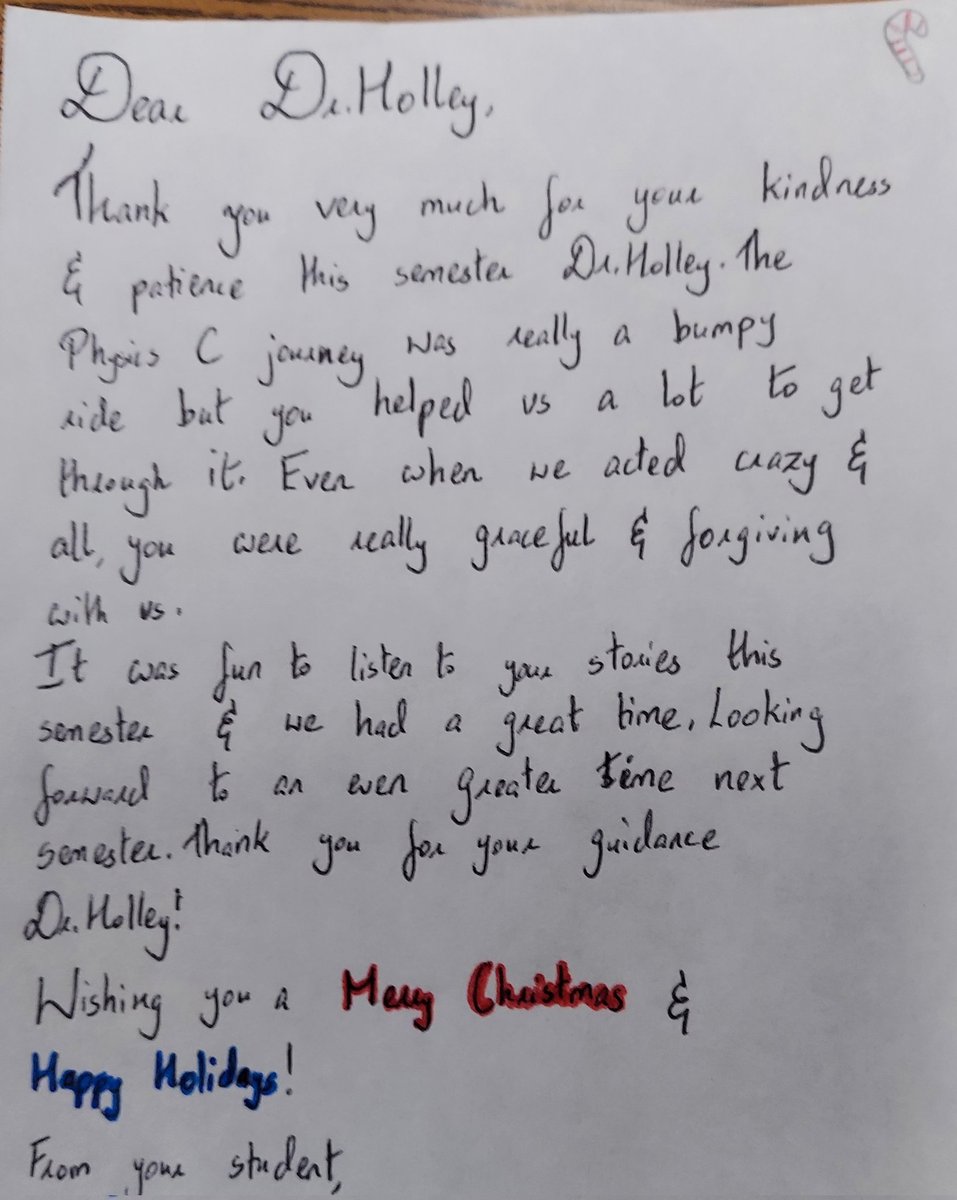 Dear Dr. Holley,
Thank you very much for your kindness
& patience this semester Dr. Holley. The
Physics C journey was really a bumpy
ride but you helped us a lot to get
through it. Even when we acted crazy &
all, you were really graceful & forgiving
with us.
It was fun to listen to your stories this
semester & we had a great time. Looking
forward to an even greater time next
semester. Thank you for your guidance
Dr. Holley!
Wishing you a Merry Christmas &
Happy Holidays!
From your student,